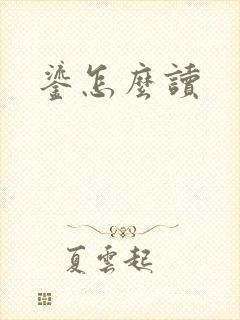 鎏怎麼讀
夏雲起